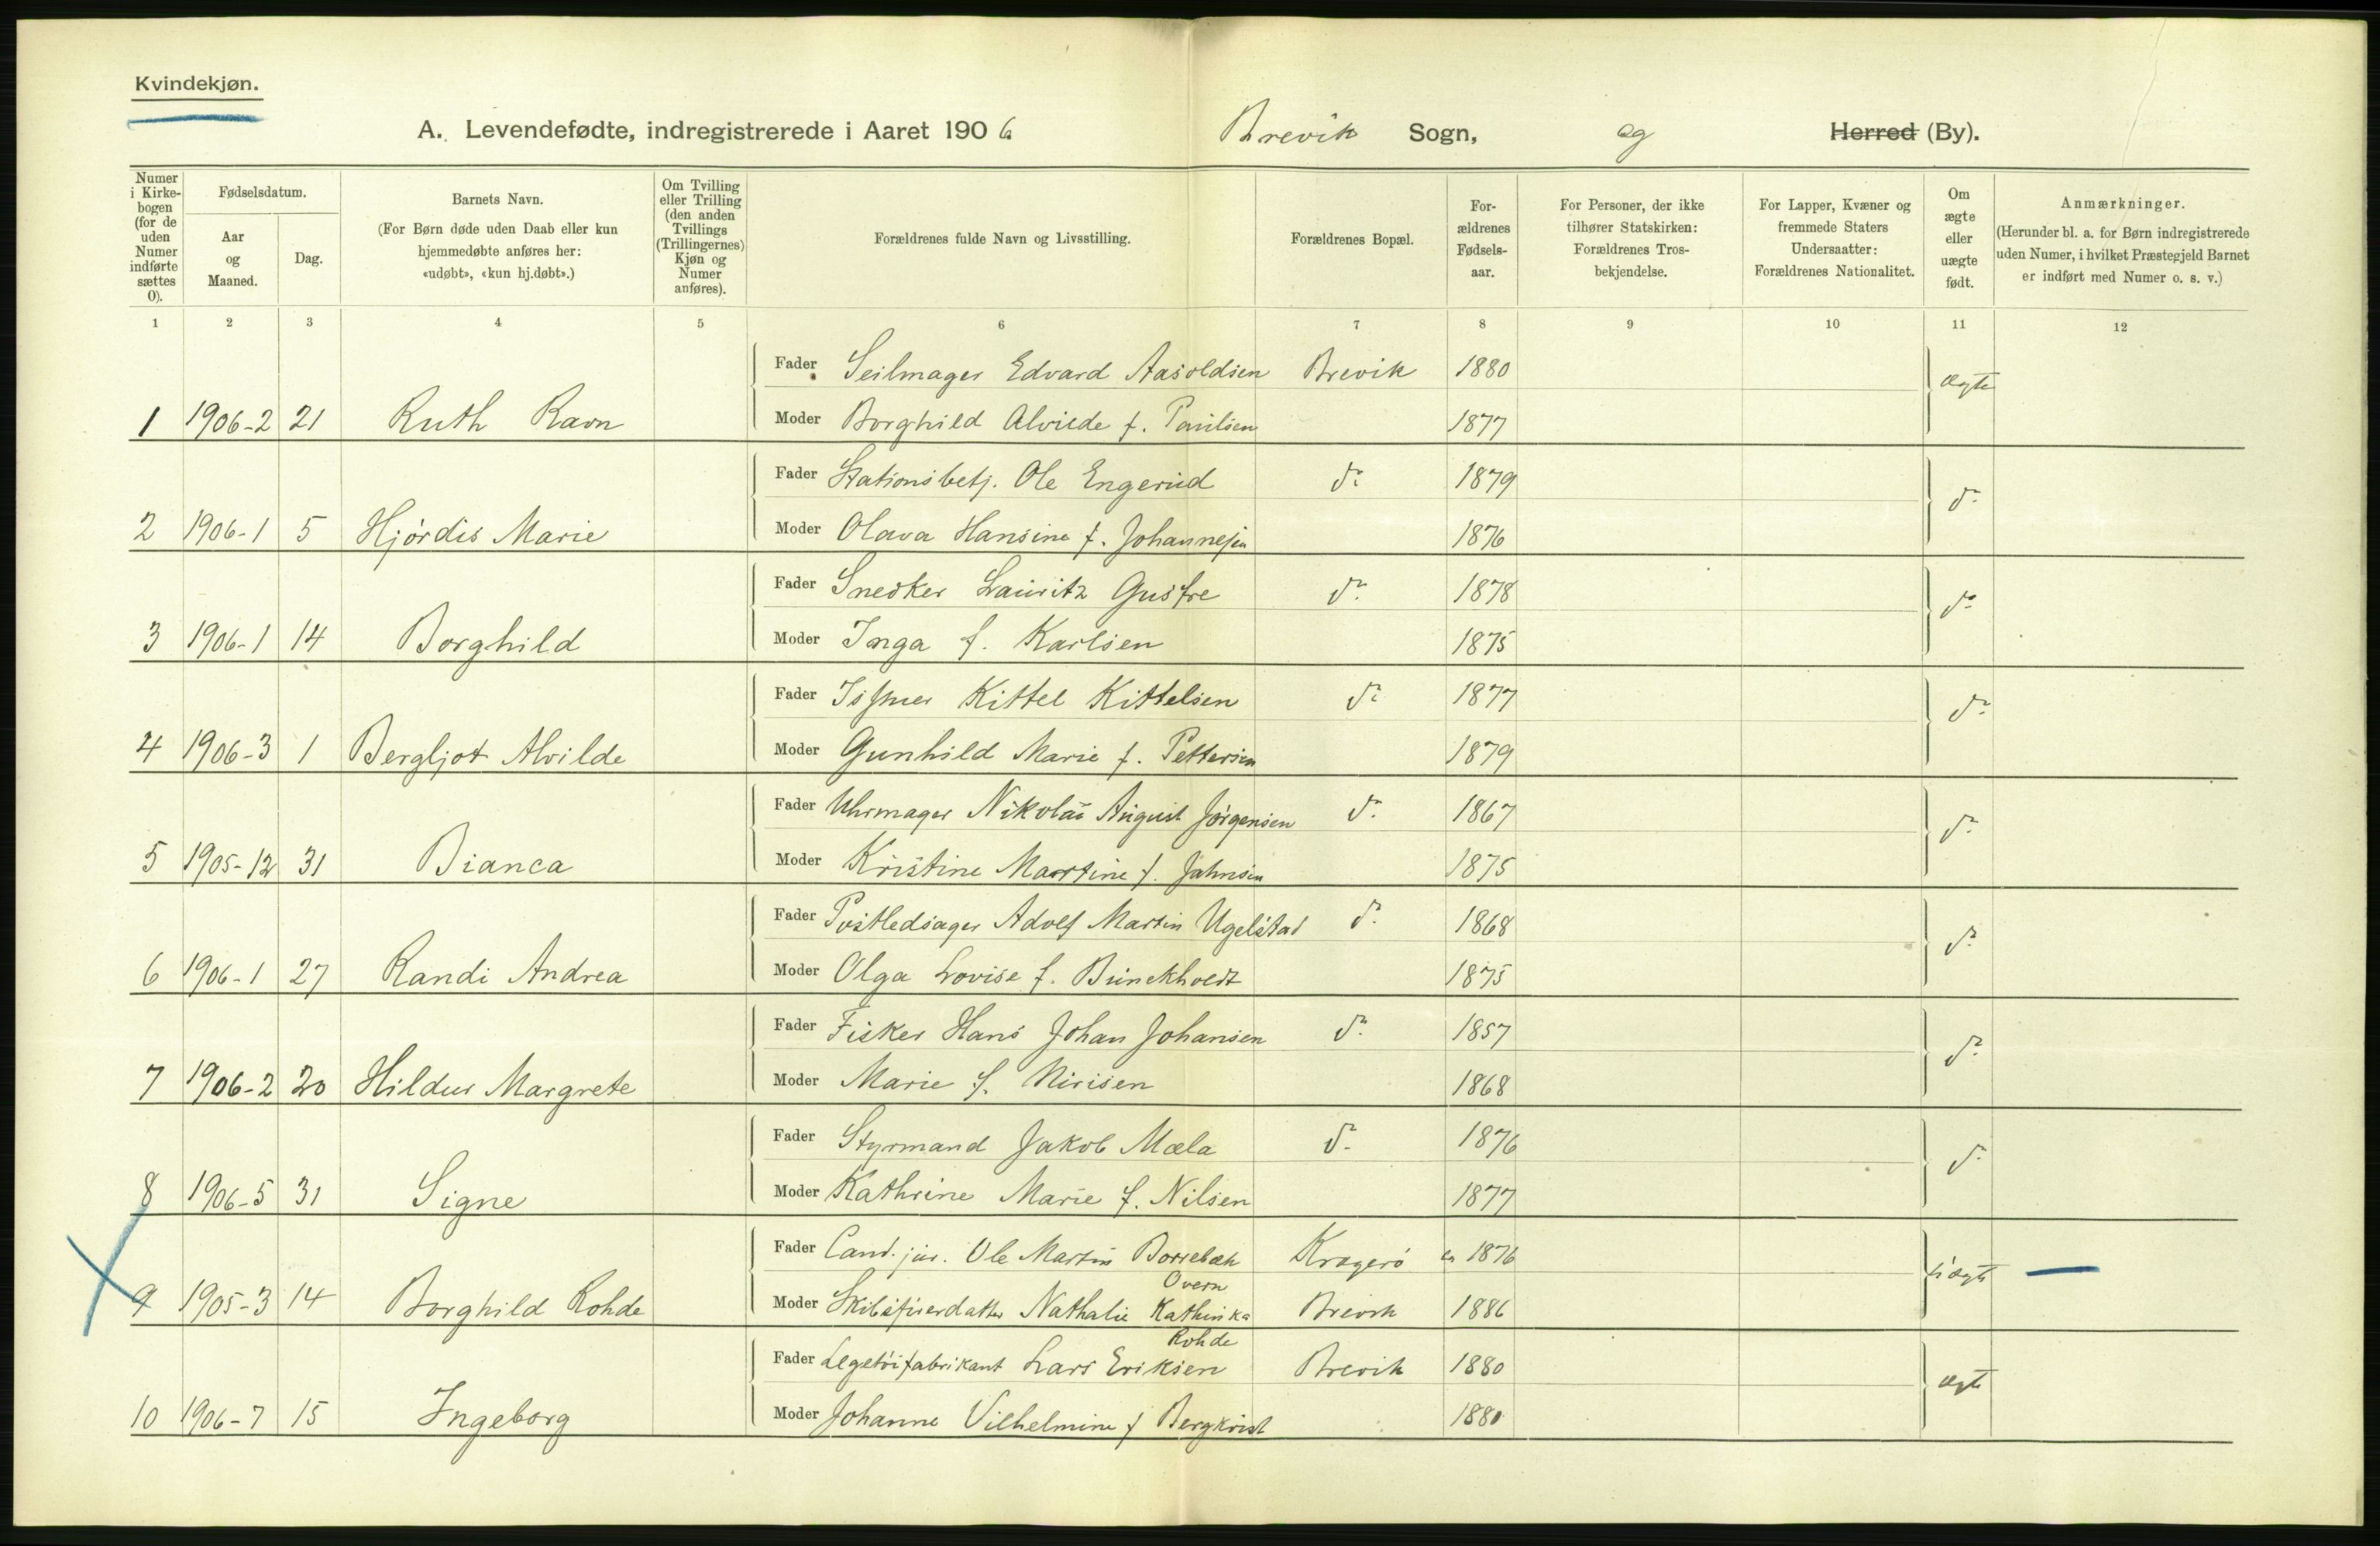 Kvindekjøn.
A. Levendefødte, indregistrerede i Aaret 1906 Brevik Sogn, og Herred (By).
Numer i Kirkebogen (for de uden Numer indførte sættes 0).
Fødselsdatum.
Aar og Maaned.
Dag.
Barnets Navn.
(For Børn døde uden Daab eller kun hjemmedøbte anføres her: «udøbt», «kun hj.døbt».)
Om Tvilling eller Trilling (den anden Tvillings (Trillingernes) Kjøn og Numer anføres).
Forældrenes fulde Navn og Livsstilling.
Forældrenes Bopæl.
Forældrenes Fødselsaar.
For Personer, der ikke tilhører Statskirken: Forældrenes Trosbekjendelse.
For Lapper, Kvæner og fremmede Staters Undersaatter: Forældrenes Nationalitet.
Om ægte eller uægte født.
Anmærkninger.
(Herunder bl. a. for Børn indregistrerede uden Numer, i hvilket Præstegjeld Barnet er indført med Numer o. s. v.)
1 2 3 4 5 6 7 8 9 10 11 12
Fader Seilmager Edvard Aasoldsen Brevik 1880 ægte
1 1906-2 21 Ruth Ravn Moder Borghild Alvilde f. Paulsen 1877
Fader Stationsbetj. Ole Engerud do 1879 do
2 1906-1 5 Hjørdis Marie Moder Olava Hansine f. Johannesen 1876
Fader Snedker Lauritz Gusfre do 1878 do
3 1906-1 14 Borghild Moder Inga f. Karlsen 1875
Fader Kittel Kittelsen do 1877 do
4 1906-3 1 Bergljot Alvilde Moder Gunhild Marie f. Pettersen 1879
Fader Uhrmager Nikolai August Jørgensen do 1867 do
5 1905-12 31 Bianca Moder Kristine Martine f. Jahnsen 1875
Fader Postledsager Adolf Martin Ugelstad do 1868 do
6 1906-1 27 Randi Andrea Moder Olga Lovise f. 1875
Fader Fisker Hans Johan Johansen do 1857 do
7 1906-2 20 Hildur Margrete Moder Marie f. 1868
Fader Styrmand Jakob Mæla do 1876 do
8 1906-5 31 Signe Moder Kathrine Marie f. Nilsen 1877
Fader Cand. jur. Ole Martin Borrebæk Kragerø ca 1876 uægte
Overn
9 1905-3 14 Borghild Rohde Moder Skibsførerdatter Nathalie Kathinka Brevik 1886
Rohde
Fader Legetøifabrikant Lars Eriksen Brevik 1880 ægte
10 1906-7 15 Ingeborg Moder Johanne Vilhelmine f Bergkvist 1880